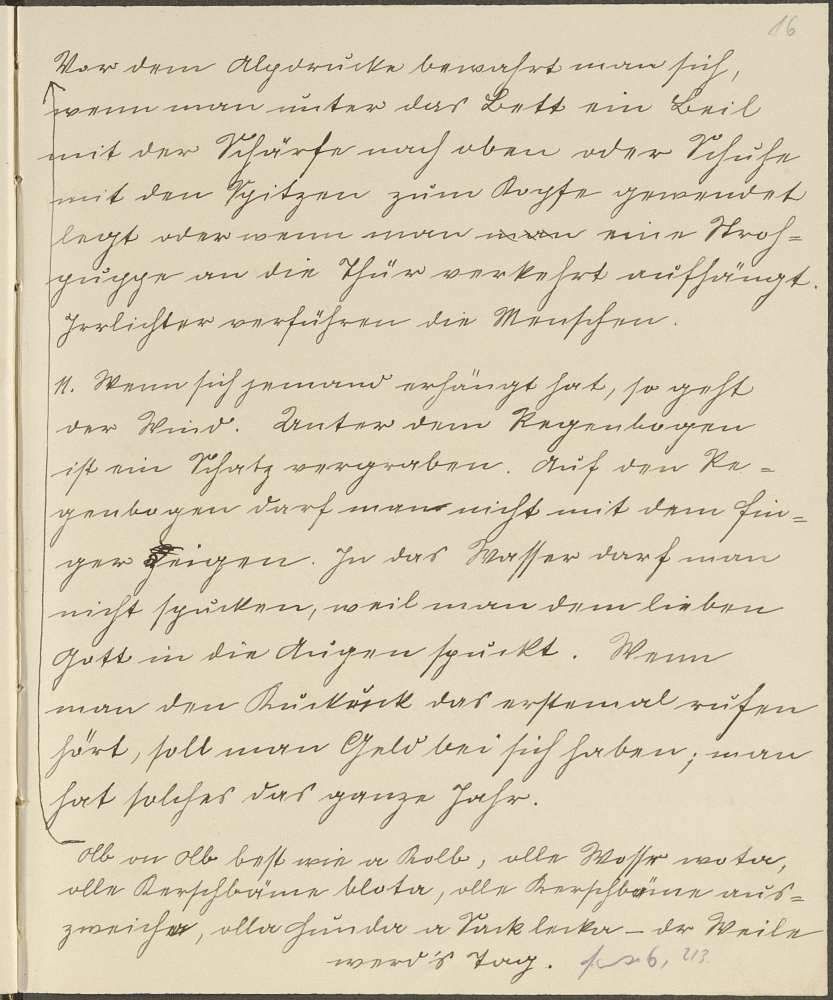 16
Vor dem Alpdrucke bewahrt man sich,
wenn man unter das Bett ein Beil
mit der Schärfe nach oben oder Schuhe
mit den Spitzen zum Kopfe gewendet
legt oder wenn man man eine Stroh=
puppe an die Thür verkehrt aufhängt.
Irrlichter verführen die Menschen.
11. Wenn sich jemand erhängt hat, so geht
der Wind. Unter dem Regenbogen
ist ein Schatz vergraben. Auf den Re=
genbogen darf man nicht mit dem Fin=
ger zeigen. In das Wasser darf man
nicht spucken, weil man dem lieben
Gott in die Augen spuckt. Wenn
man den Kuckuck das erstemal rufen
hört, soll man Geld bei sich haben; man
hat solches das ganze Jahr.
Olb on Olb best wie a Kolb, olle Wossr wota,
olle Kerschbäme blota, olle Kerschbäme aus=
zweicha, olla Hunda a Sack lecka – dr Weile
werd's Tag.